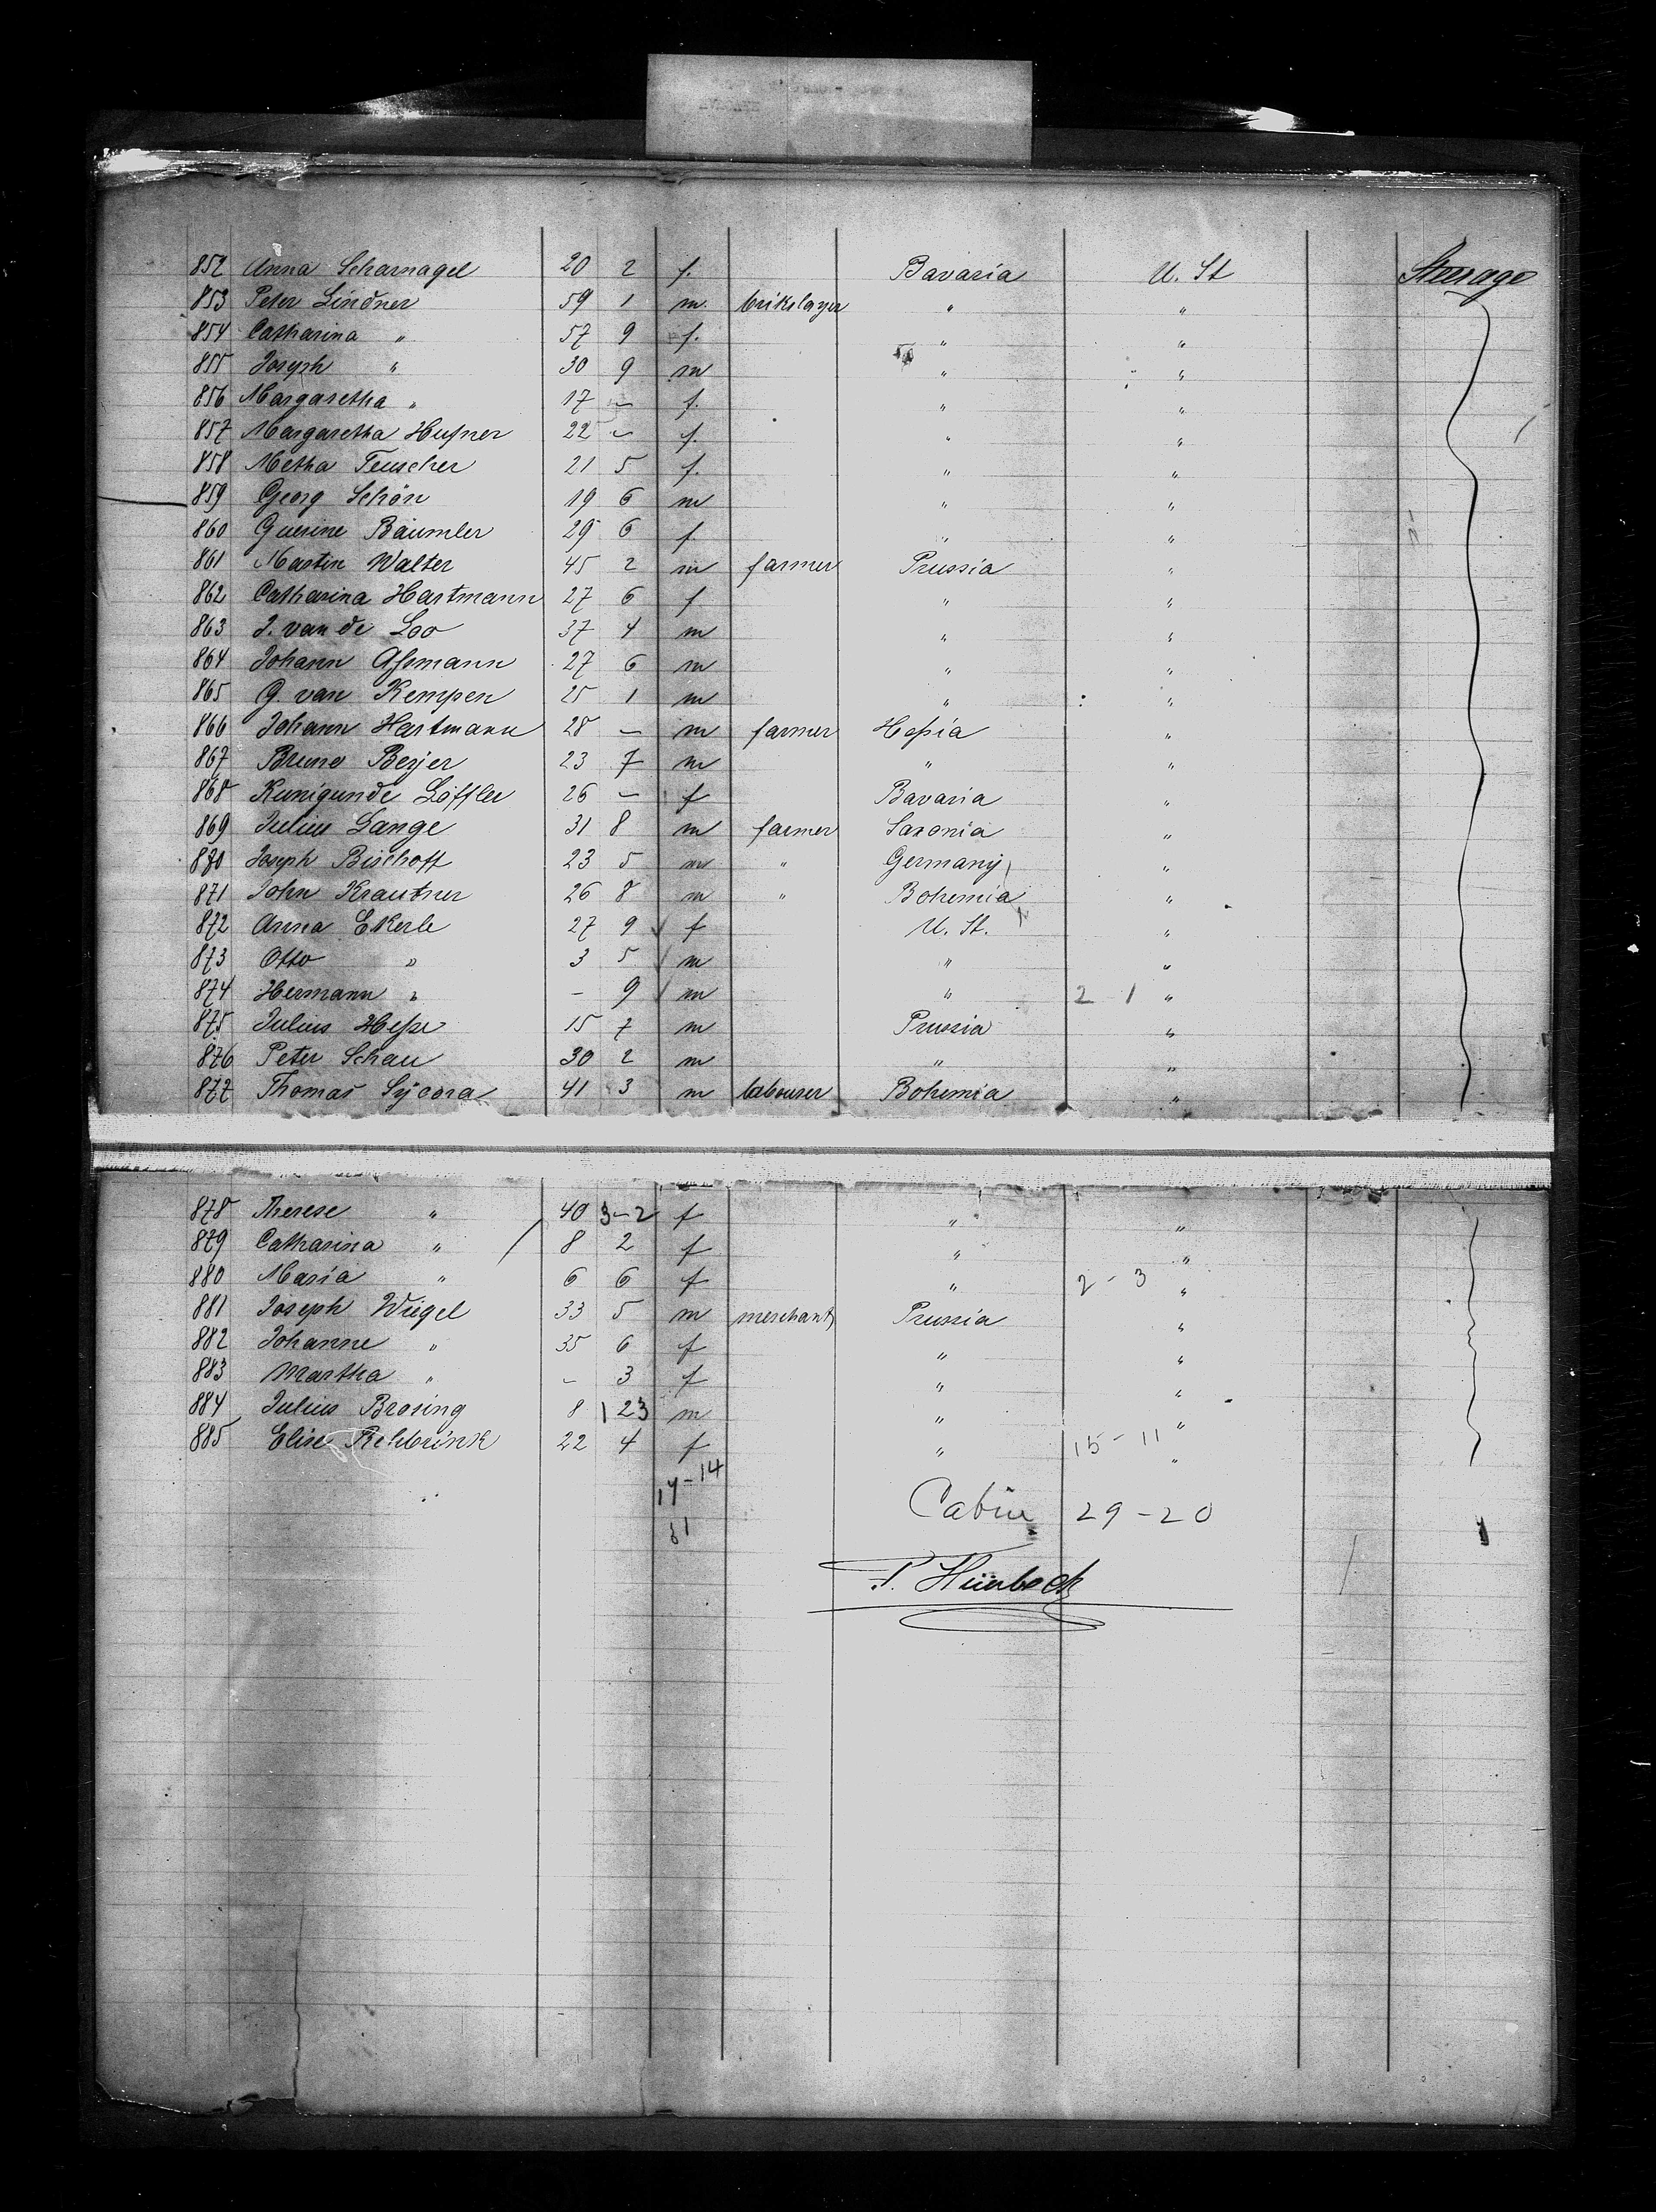 852 Anna Scharnagel 20 2 f. Bavaria U. St Steerage
853 Peter Lindner 59 1 m. brikslayer " "
854 Catharina " 57 9 f. " "
855 Joseph " 30 9 m " "
856 Margaretha " 17 - f. " "
857 Margaretha Hufner 22 - f. " "
858 Metha Teuscher 21 5 f. " "
859 Georg Schön 19 6 m " "
860 Guerine Bäumler 29 6 f " "
861 Martin Walter 45 2 m farmer Prussia "
862 Catharina Hartmann 27 6 f " "
863 J. van de Loo 37 4 m " "
864 Johann Aſsmann 27 6 m " "
865 G. van Kempen 25 1 m " "
866 Johann Hartmann 28 - m farmer Heſsia "
867 Bruno Beyer 23 7 m " "
868 Kunigunde Löffler 26 - f Bavaria "
869 Julius Lange 31 8 m farmer Saxonia "
870 Joseph Bischoff 23 5 m " Germany "
871 John Krautner 26 8 m " Bohemia "
872 Anna Ekerle 27 9 f U. St. "
873 Otto " 3 5 m " "
874 Hermann " - 9 m " 2 - 1 "
875 Julius Heſse 15 7 m Prussia "
876 Peter Schau 30 2 m " "
877 Thomas Sycora 41 3 m labourer Bohemia "
878 Therese " 40 3-2 f " "
879 Catharina " 8 2 f " "
880 Maria " 6 6 f " 2 - 3 "
881 Joseph Wiegel 33 5 m merchant Prussia "
882 Johanne " 35 6 f " "
883 Martha " - 3 f " "
884 Julius Brosing 8 1 23 m " "
885 Elise Rehbrink 22 4 f " 15 - 11 "
17-14
31
Cabin 29 - 20